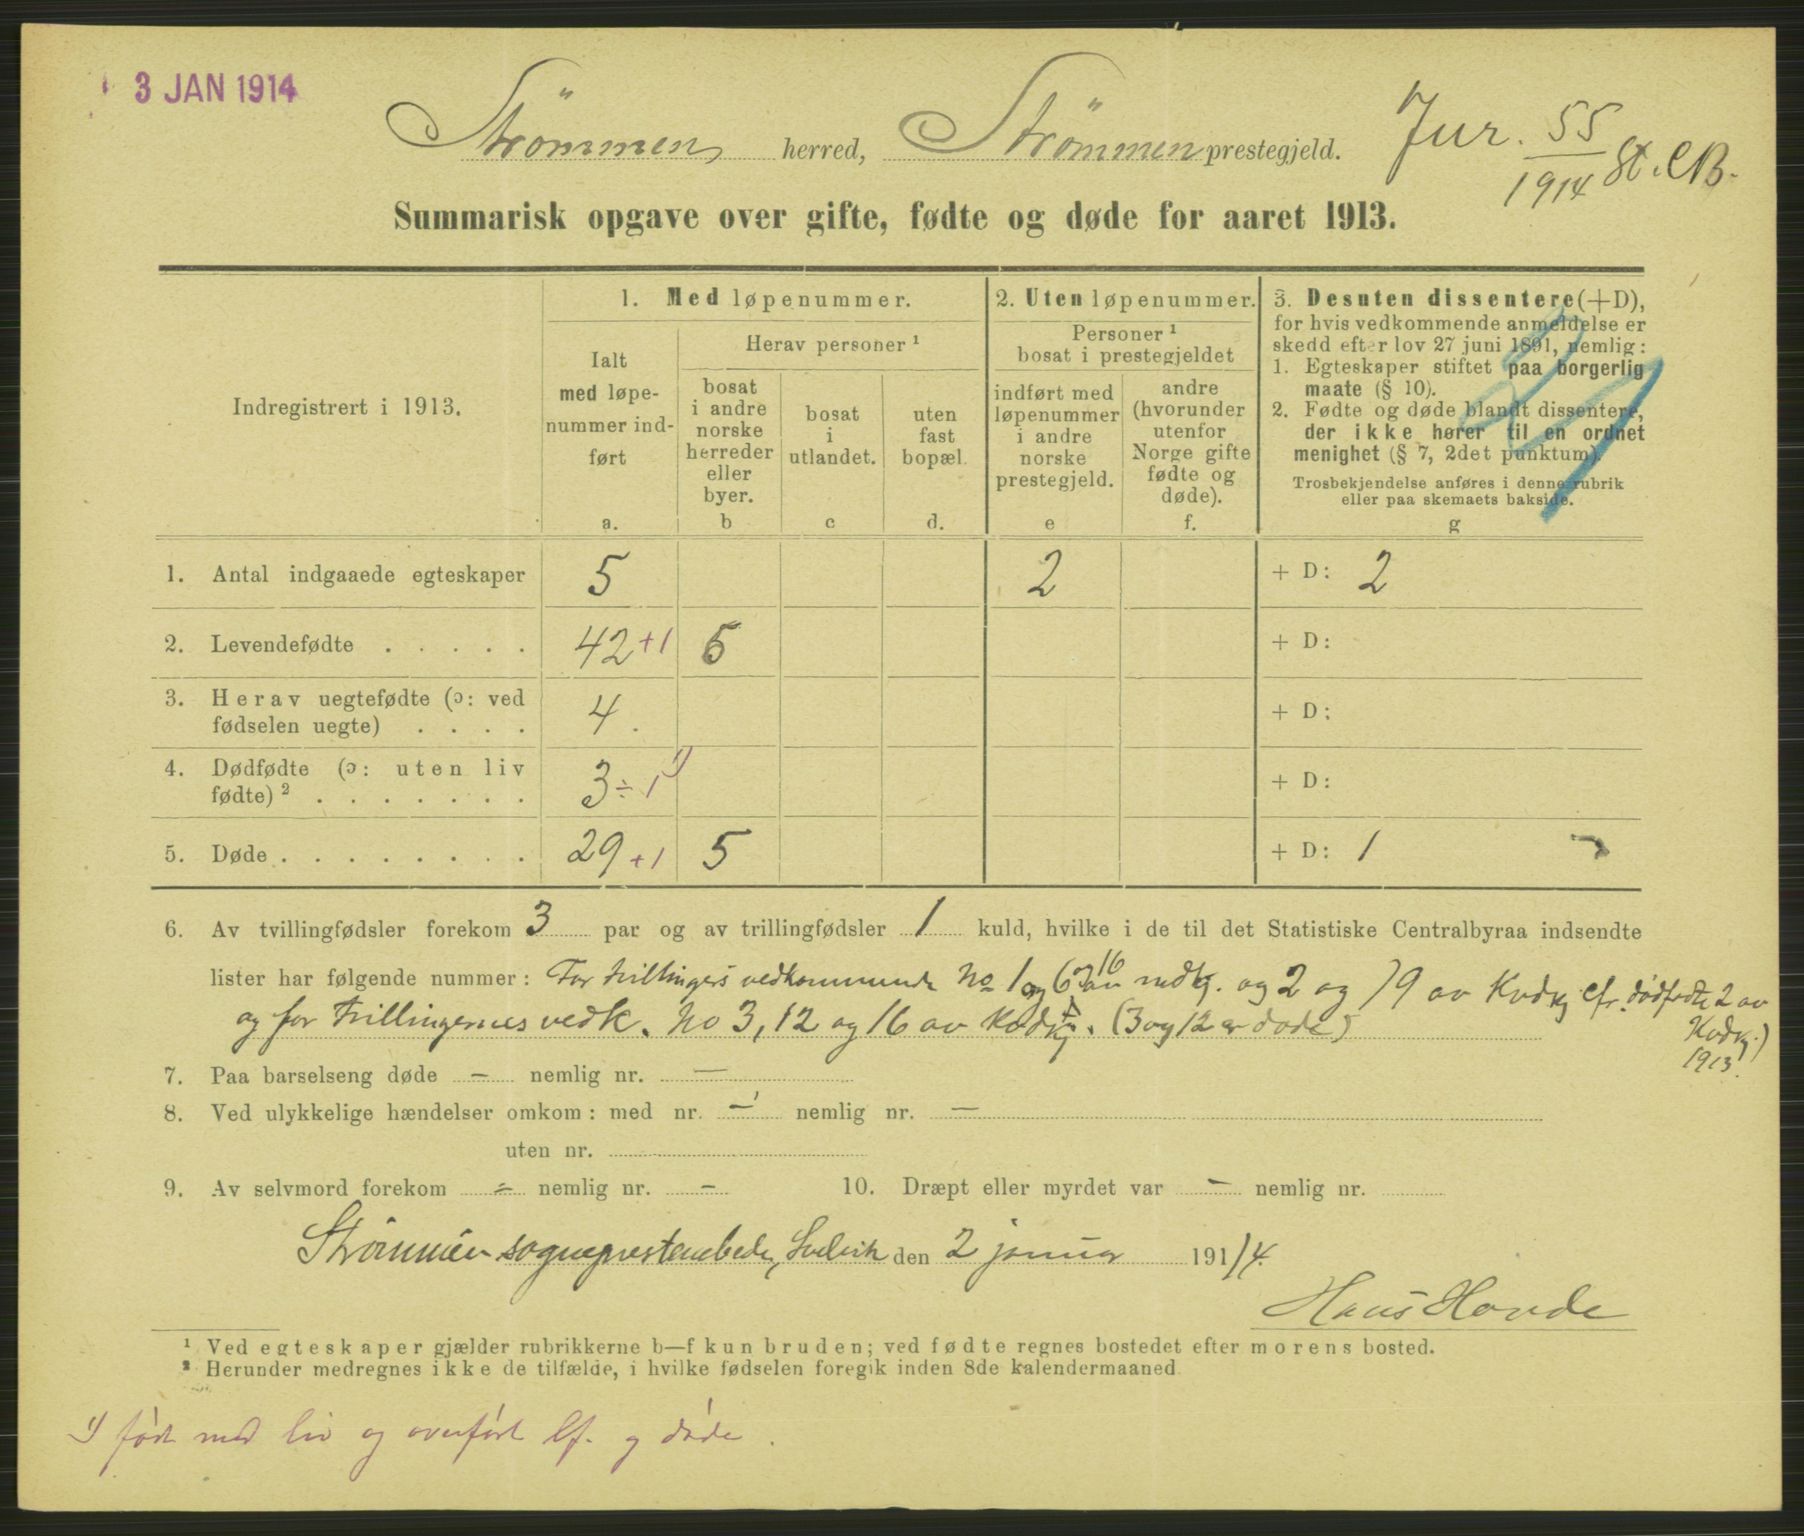 3 JAN 1914
Strömmen herred, Strömmen prestegjeld.
Jnr. 55
1914 St. C.B.
Summarisk opgave over gifte, fødte og døde for aaret 1913.
Indregistrert i 1913.
1. Med løpenummer.
Ialt
med løpe-
nummer ind-
ført
a.
Herav personer ¹
bosat
i andre
norske
herreder
eller
byer.
b
bosat
i
utlandet.
c
uten
fast
bopæl.
d.
2. Uten løpenummer.
Personer ¹
bosat i prestegjeldet
indført med
løpenummer
i andre
norske
prestegjeld.
e
andre
(hvorunder
utenfor
Norge gifte
fødte og
døde).
f.
3. Desuten dissentere (+D),
for hvis vedkommende anmeldelse er
skedd efter lov 27 juni 1891, nemlig:
1. Egteskaper stiftet paa borgerlig
maate (§ 10).
2. Fødte og døde blandt dissentere,
der ikke hører til en ordnet
menighet (§ 7, 2det punktum).
Trosbekjendelse anføres i denne rubrik
eller paa skemaets bakside.
g
1. Antal indgaaede egteskaper 5 2 + D: 2
2. Levendefødte . . . . . 42 +1 6 + D:
3. Herav uegtefødte (ɔ: ved
fødselen uegte) . . . . 4. + D:
4. Dødfødte (ɔ: uten liv
fødte) ² . . . . . . . 3 ÷ 1 ¹) + D:
5. Døde . . . . . . . . 29 +1 5 + D: 1
6. Av tvillingfødsler forekom 3 par og av trillingfødsler 1 kuld, hvilke i de til det Statistiske Centralbyraa indsendte
lister har følgende nummer: For tvillingers vedkommende No 1 og 6 16 av mdkj. og 2 og 19 av Kvdkj cfr. dødfødte 2 av
Kvdkj.)
1913.
og for Trillingernes vedk. No 3, 12 og 16 av Kvdkj. (3 og 12 er døde)
7. Paa barselseng døde – nemlig nr. –
8. Ved ulykkelige hændelser omkom: med nr. – nemlig nr. –
uten nr.
9. Av selvmord forekom – nemlig nr. – 10. Dræpt eller myrdet var – nemlig nr.
Strömmen sogneprestembede, Svelvik den 2 januar 1914.
Hans Hovde
¹ Ved egteskaper gjælder rubrikkerne b—f kun bruden; ved fødte regnes bostedet efter morens bosted.
² Herunder medregnes ikke de tilfælde, i hvilke fødselen foregik inden 8de kalendermaaned.
¹) født med liv og overført lf. og døde.